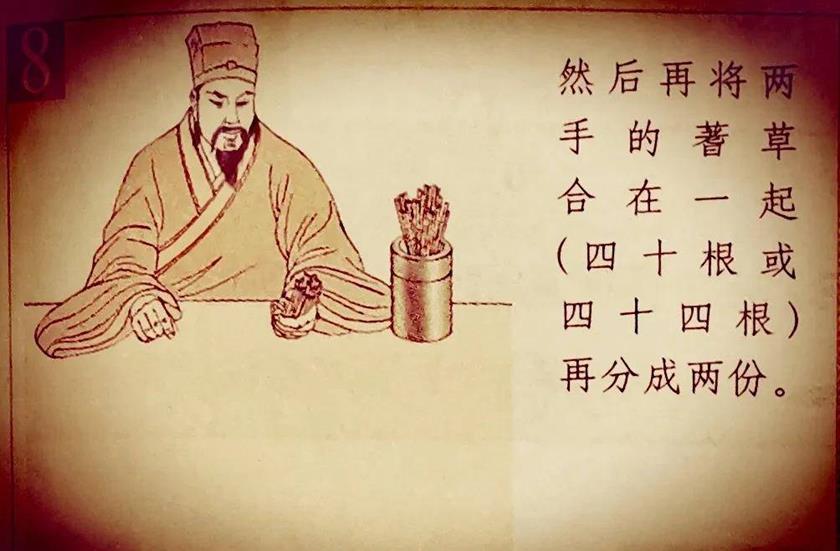 8
然后再将两
手的蓍草
合在一起
(四十根或
四十四根)
再分成两份。